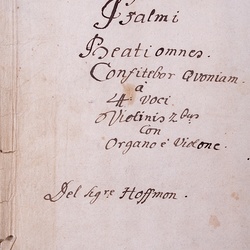 Psalmi
Beati omnes.
Confitebor Quoniam.
à
4. Voci
Violinis 2bus
con
Organo è Violone.
Del Sigre Hoffmon.